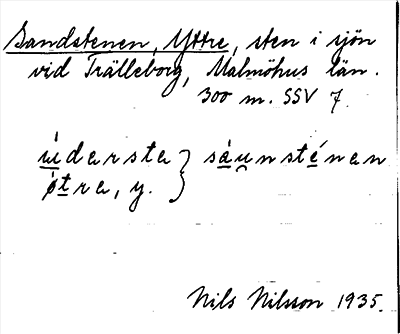 Sandstenen, Yttre, sten i sjön
vid Trälleborg, Malmöhus län.
300 m. SSV 7.
ùdersta } sáunsténan
ǿtra, y.
Nils Nilsson 1935.